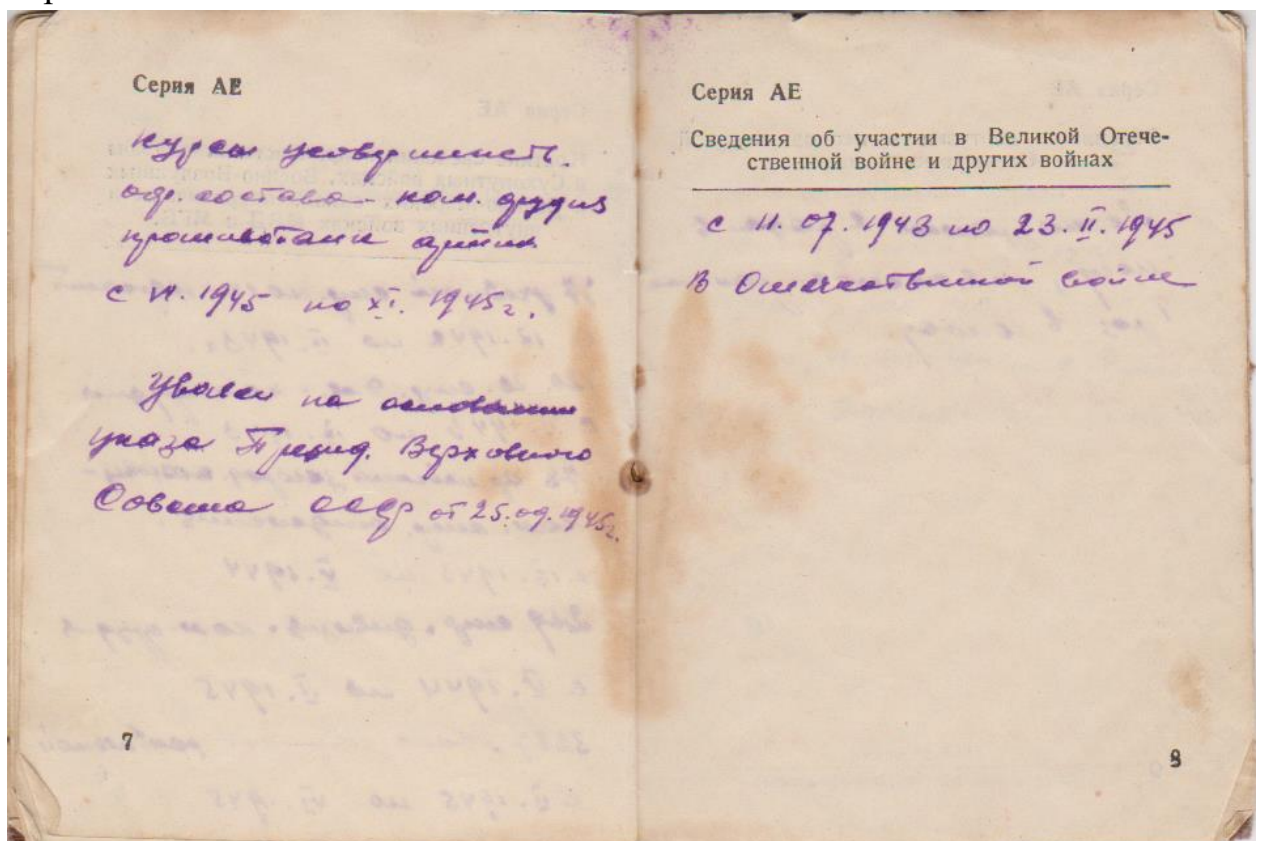 Серия АЕ
Курсы усовершенств.
оф. состава ком. орудия
противотанк артил
с VI. 1945 по XI. 1945 г.
Уволен на основании
указа Презид. Верховного
Совета СССР от 25.09.1945г.
7
Серия АЕ
Сведения об участии в Великой Отече-
ственной войне и других войнах
с 11. 07. 1943 по 23. II. 1945
В Отечественной войне
8